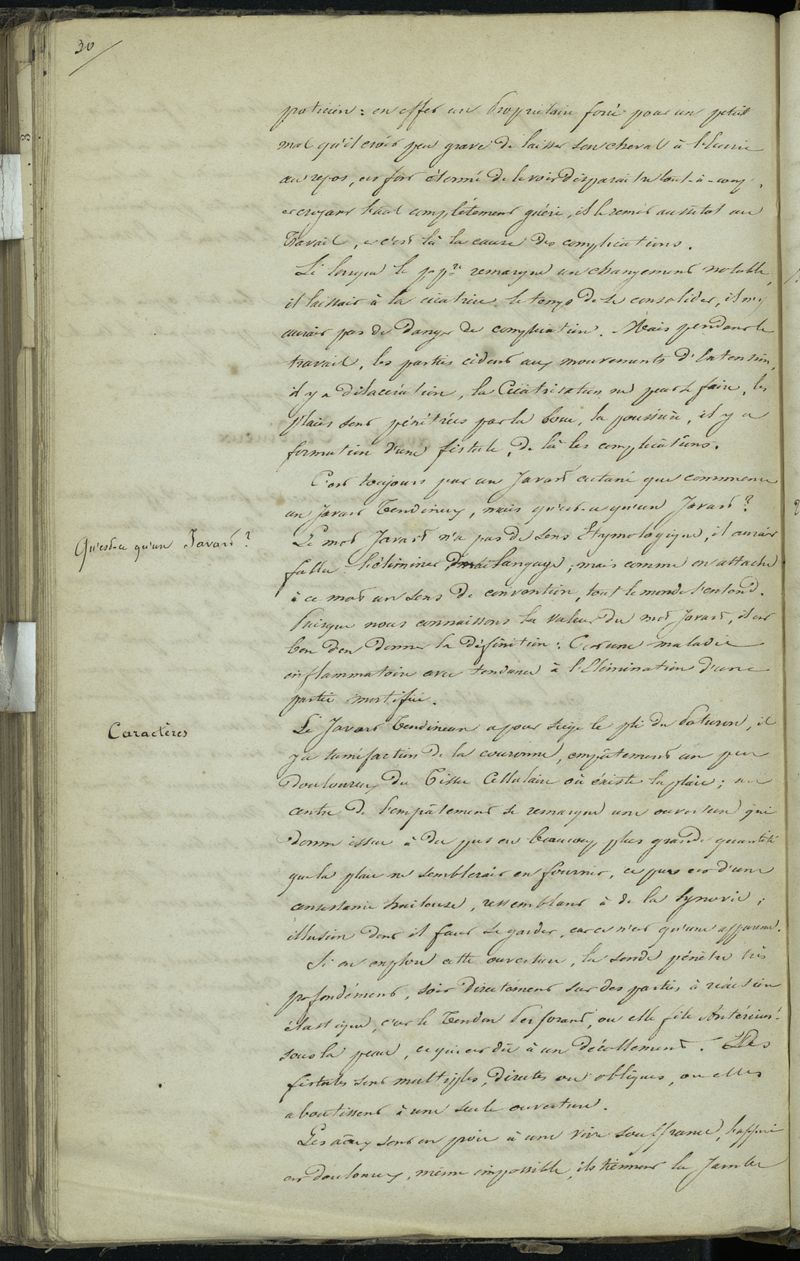 30
praticien : en effet un Propriétaire forcé pour un petit
mal qu'il croit peu grave de laisser son cheval à l'Ecurie
au repos, est fort étonné de le voir disparaître tout-à-coup,
et croyant tout complètement guéri, il le remet aussitôt au
Travail, et c'est là la cause des complications.
Si lorsque le pp.re remarque un changement notable,
il laissait à la cicatrice le temps de se consolider, il n'y
aurait pas de danger de complication. Mais pendant le
travail, les parties cèdent aux mouvements d'Extension,
il y a dilacération, la Cicatrisation ne peut se faire, les
plaies sont pénétrées par la boue, la poussière, il y a
formation d'une fistule, De là les complications.
C'est toujours par un Javart cutané que commence
un Javart Tendineux, mais qu'est-ce qu'un Javart ?
Qu'est-ce qu'un Javart ?
Le mot Javart n'a pas de sens Etymologique, il aurait
fallu l'éliminer du langage ; mais comme on attache
à ce mot un sens de convention, tout le monde s'entend.
Puisque nous connaissons la valeur du mot Javart, il est
bon d'en donner la définition : C'est une maladie
inflammatoire avec tendance à l'Elimination d'une
partie mortifiée.
Caractères
Le Javart Tendineux a pour siège le pli du Paturon, il
y a tuméfaction de la couronne, empâtement un peu
douloureux du Tissu Cellulaire où existe la plaie ; au
centre de l'empâtement se remarque une ouverture qui
donne issue à du pus en beaucoup plus grande quantité
que la plaie ne semblerait en fournir, ce pus est d'une
consistance huileuse, ressemblant à de la Synovie ;
illusion dont il faut se garder, car ce n'est qu'une apparence.
Si on explore cette ouverture, la sonde pénètre très
profondément, soit directement sur des parties à réaction
élastique, c'est le Tendon Perforant, ou elle file Antérieurt.
sous la peau, ce qui est dû à un décollement. Les
fistules sont multiples, directes ou obliques, ou elles
aboutissent à une seule ouverture.
Les aãux sont en proie à une vive souffrance, l'appui
est douloureux, même impossible, ils tiennent la Jambe